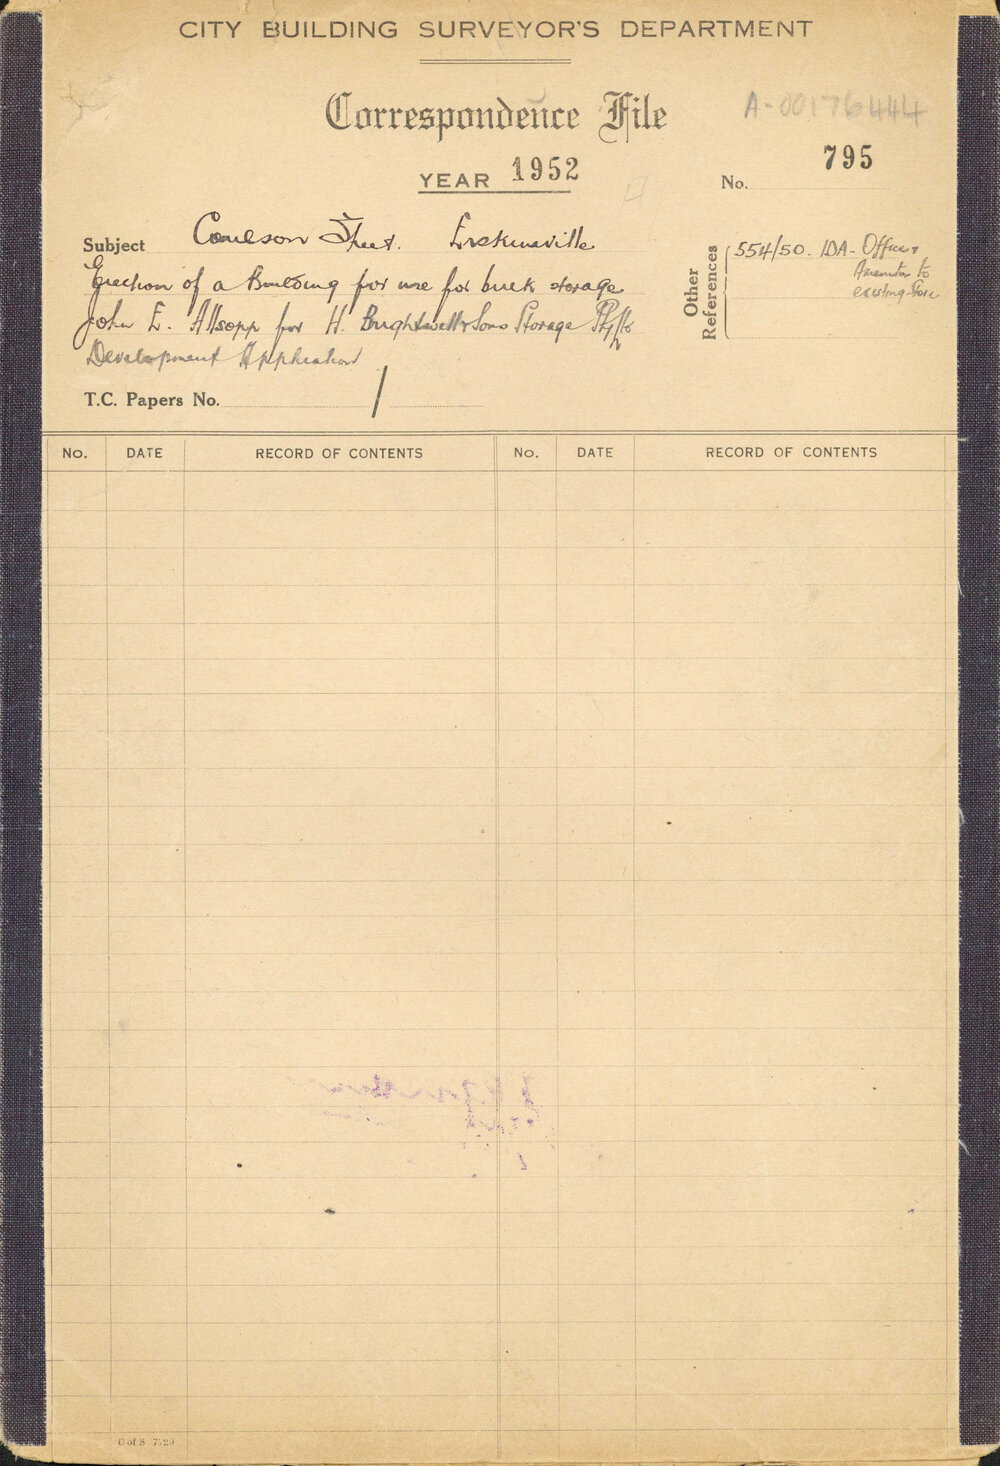 CITY BUILDING SURVEYOR'S DEPARTMENT
Correspondence File
A-00176444
YEAR 1952
No. 795
Subject Coulson Street. Erskineville
Erection of a Building for use for bulk storage
John E. Allsopp for H. Brightwell & Sons Storage Pty Ltd
Development Application
Other References
554/50. IDA - Office &
Amenities to
existing Store
T.C. Papers No. /
No. DATE RECORD OF CONTENTS No. DATE RECORD OF CONTENTS
C of S 7729